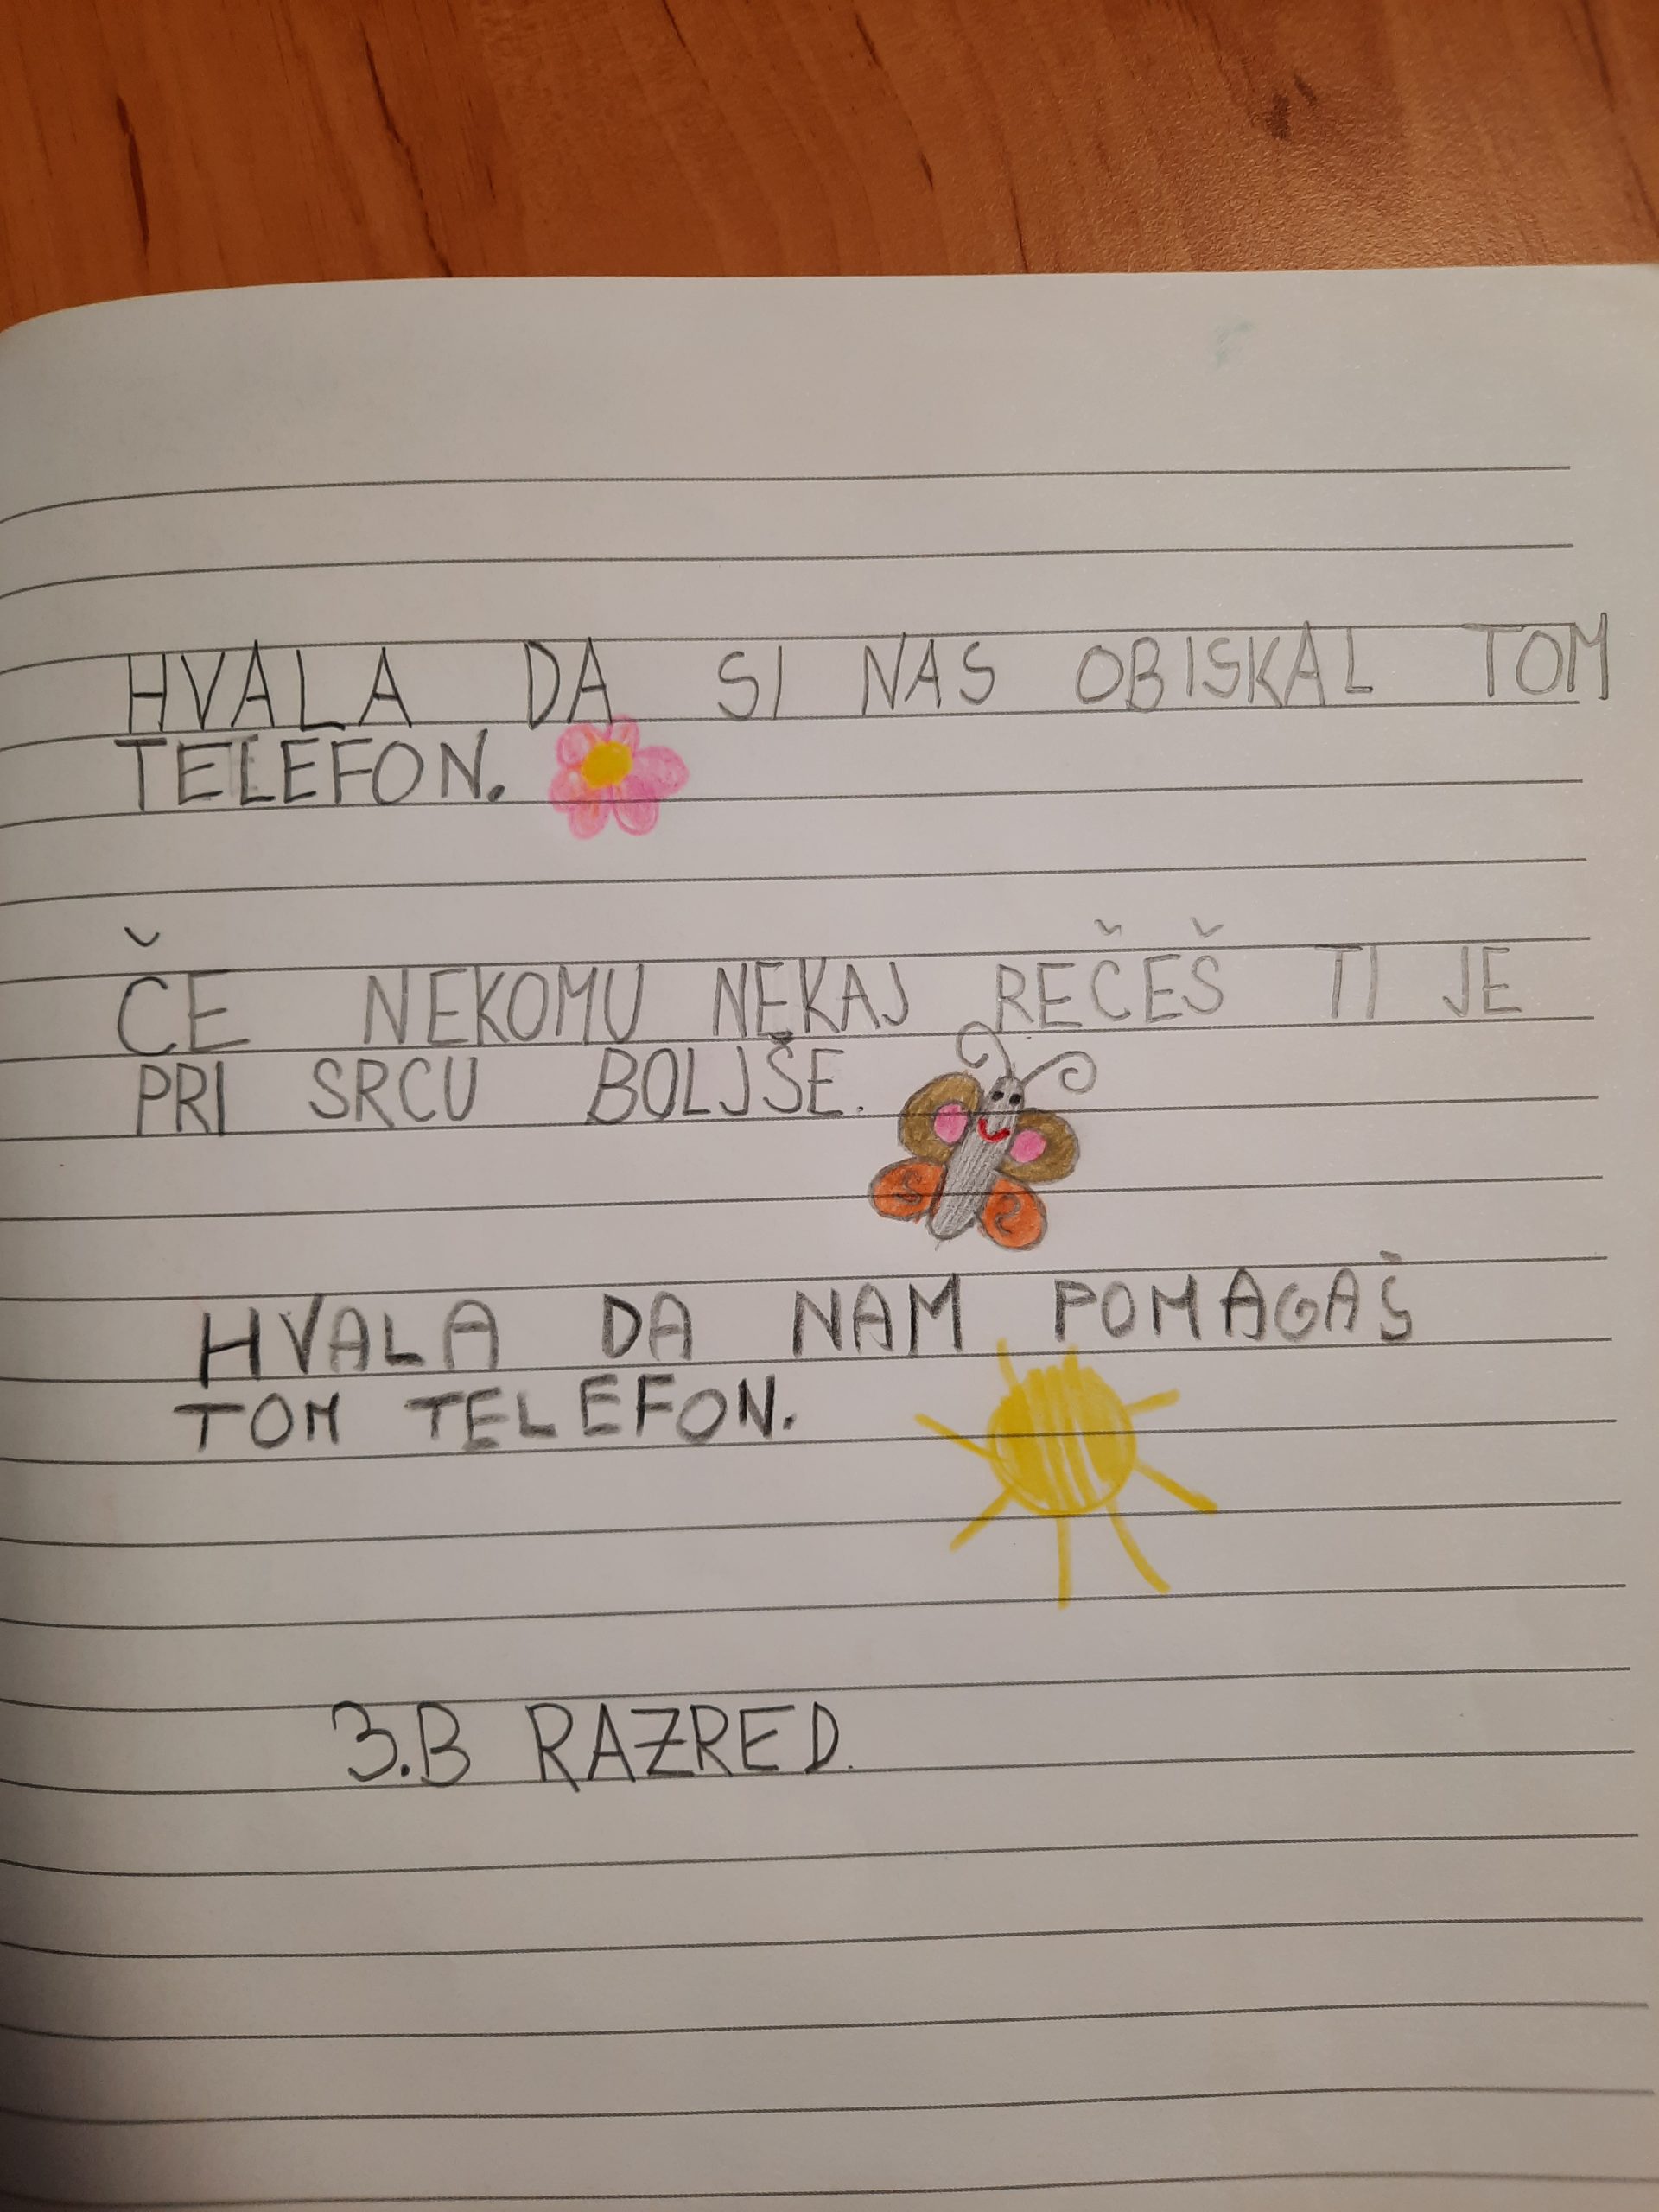 HVALA DA SI NAS OBISKAL TOM
TELEFON.
ČE NEKOMU NEKAJ REČEŠ TI JE
PRI SRCU BOLJŠE.
HVALA DA NAM POMAGAŠ
TOM TELEFON.
3.B RAZRED.